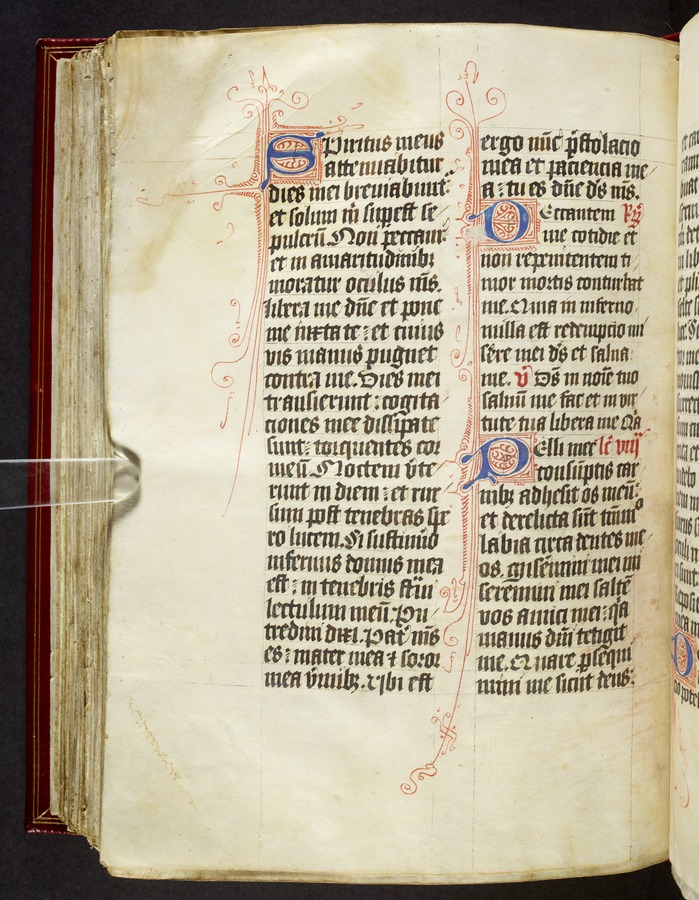 Spiritus meus
attenuabitur
dies mei breuiabunt᷑
et solum m̄ supest se
pulcrū. Non peccaui
et in amaritudinibꝫ
moratur oculus m̄s.
libera me dn̄e et pone
me iuxta te: et cuius
vis manus pugnet
contra me. Dies mei
transierunt: cogita
ciones mee dissipate
sunt: torquentes cor
meū. Noctem v̄te
runt in diem: et rur
sum post tenebras spe
ro lucem. Si sustinuō
infernus domus mea
est: in tenebris st̄ui
lectulum meū. Pu
tredini dixi. Pat̄ m̄s
es: mater mea ⁊ soror
mea v̄mibꝫ. Vbi est
ergo nūc p̄stolacio
mea et paciencia me
a: tu es dn̄e ds̄ m̄s.
Peccantem R̄
me cotidie et
non repenitentem ti
mor mortis conturbat
me. Quia in inferno
nulla est redempcio mi
sēre mei ds̄ et salua
me. v̄ Ds̄ in noīe tuo
saluū me fac et in vir
tute tua libera me Qā
Pelli mee lc̄ viij
consūptis car
nibꝫ adhesit os meū:
et derelicta sūt tm̄mō
labia circa dentes me
os. Misēmini mei mi
seremini mei salte
vos amici mei: qa
manus dn̄i tetigit
me. Quare p̄seqmi
mini me sicut deus: